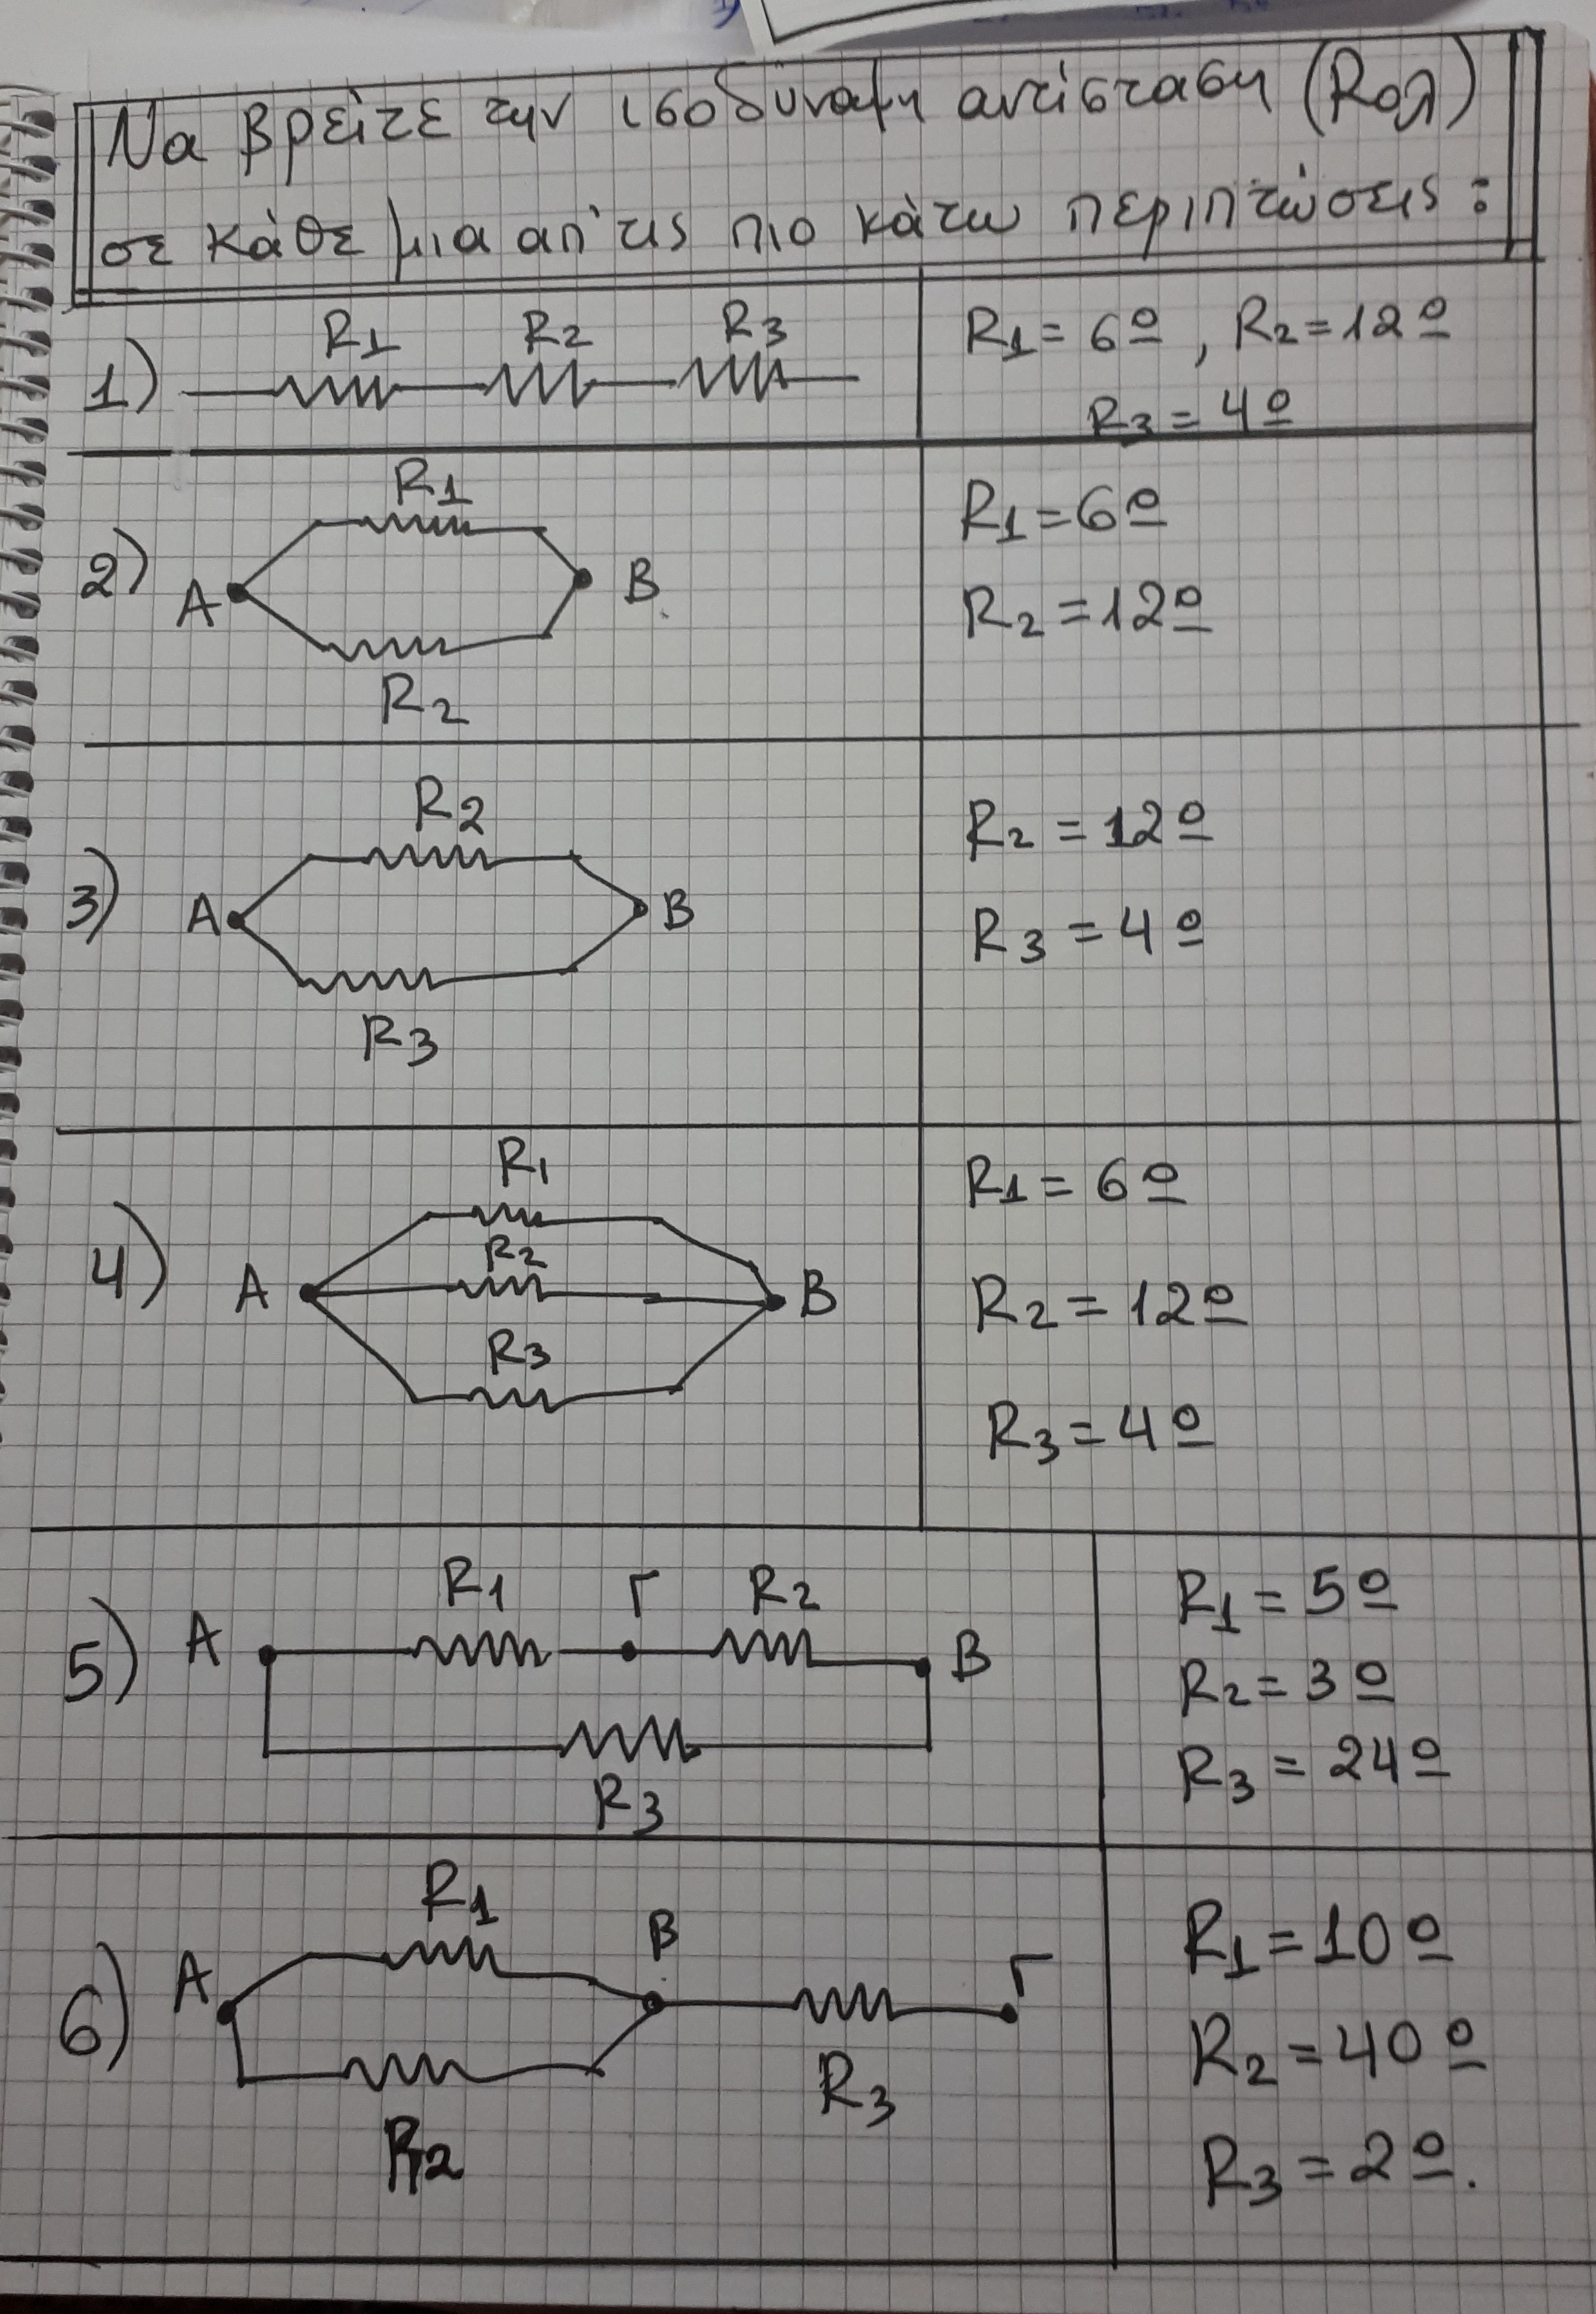 Να βρείτε την ισοδύναμη αντίσταση (Rολ)
σε κάθε μια απ' τις πιο κάτω περιπτώσεις:
1) R1 R2 R3
R1 = 6Ω, R2 = 12Ω
R3 = 4Ω
2) A R1 B
R2
R1 = 6Ω
R2 = 12Ω
3) A R2 B
R3
R2 = 12Ω
R3 = 4Ω
4) A R1 B
R2
R3
R1 = 6Ω
R2 = 12Ω
R3 = 4Ω
5) A R1 Γ R2 B
R3
R1 = 5Ω
R2 = 3Ω
R3 = 24Ω
6) A R1 B Γ
R2 R3
R1 = 10Ω
R2 = 40Ω
R3 = 2Ω.